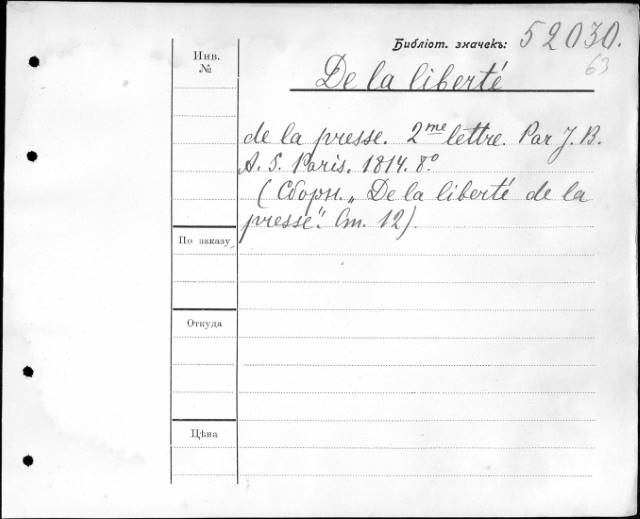 Библіот. значекъ: 52030.
63
Инв.
№
De la liberté
de la presse. 2me lettre. Par J. B.
A. S. Paris. 1814. 8º
(Сборн. „De la liberté de la
presse“. Ст. 12).
По заказу
Откуда
Цѣна